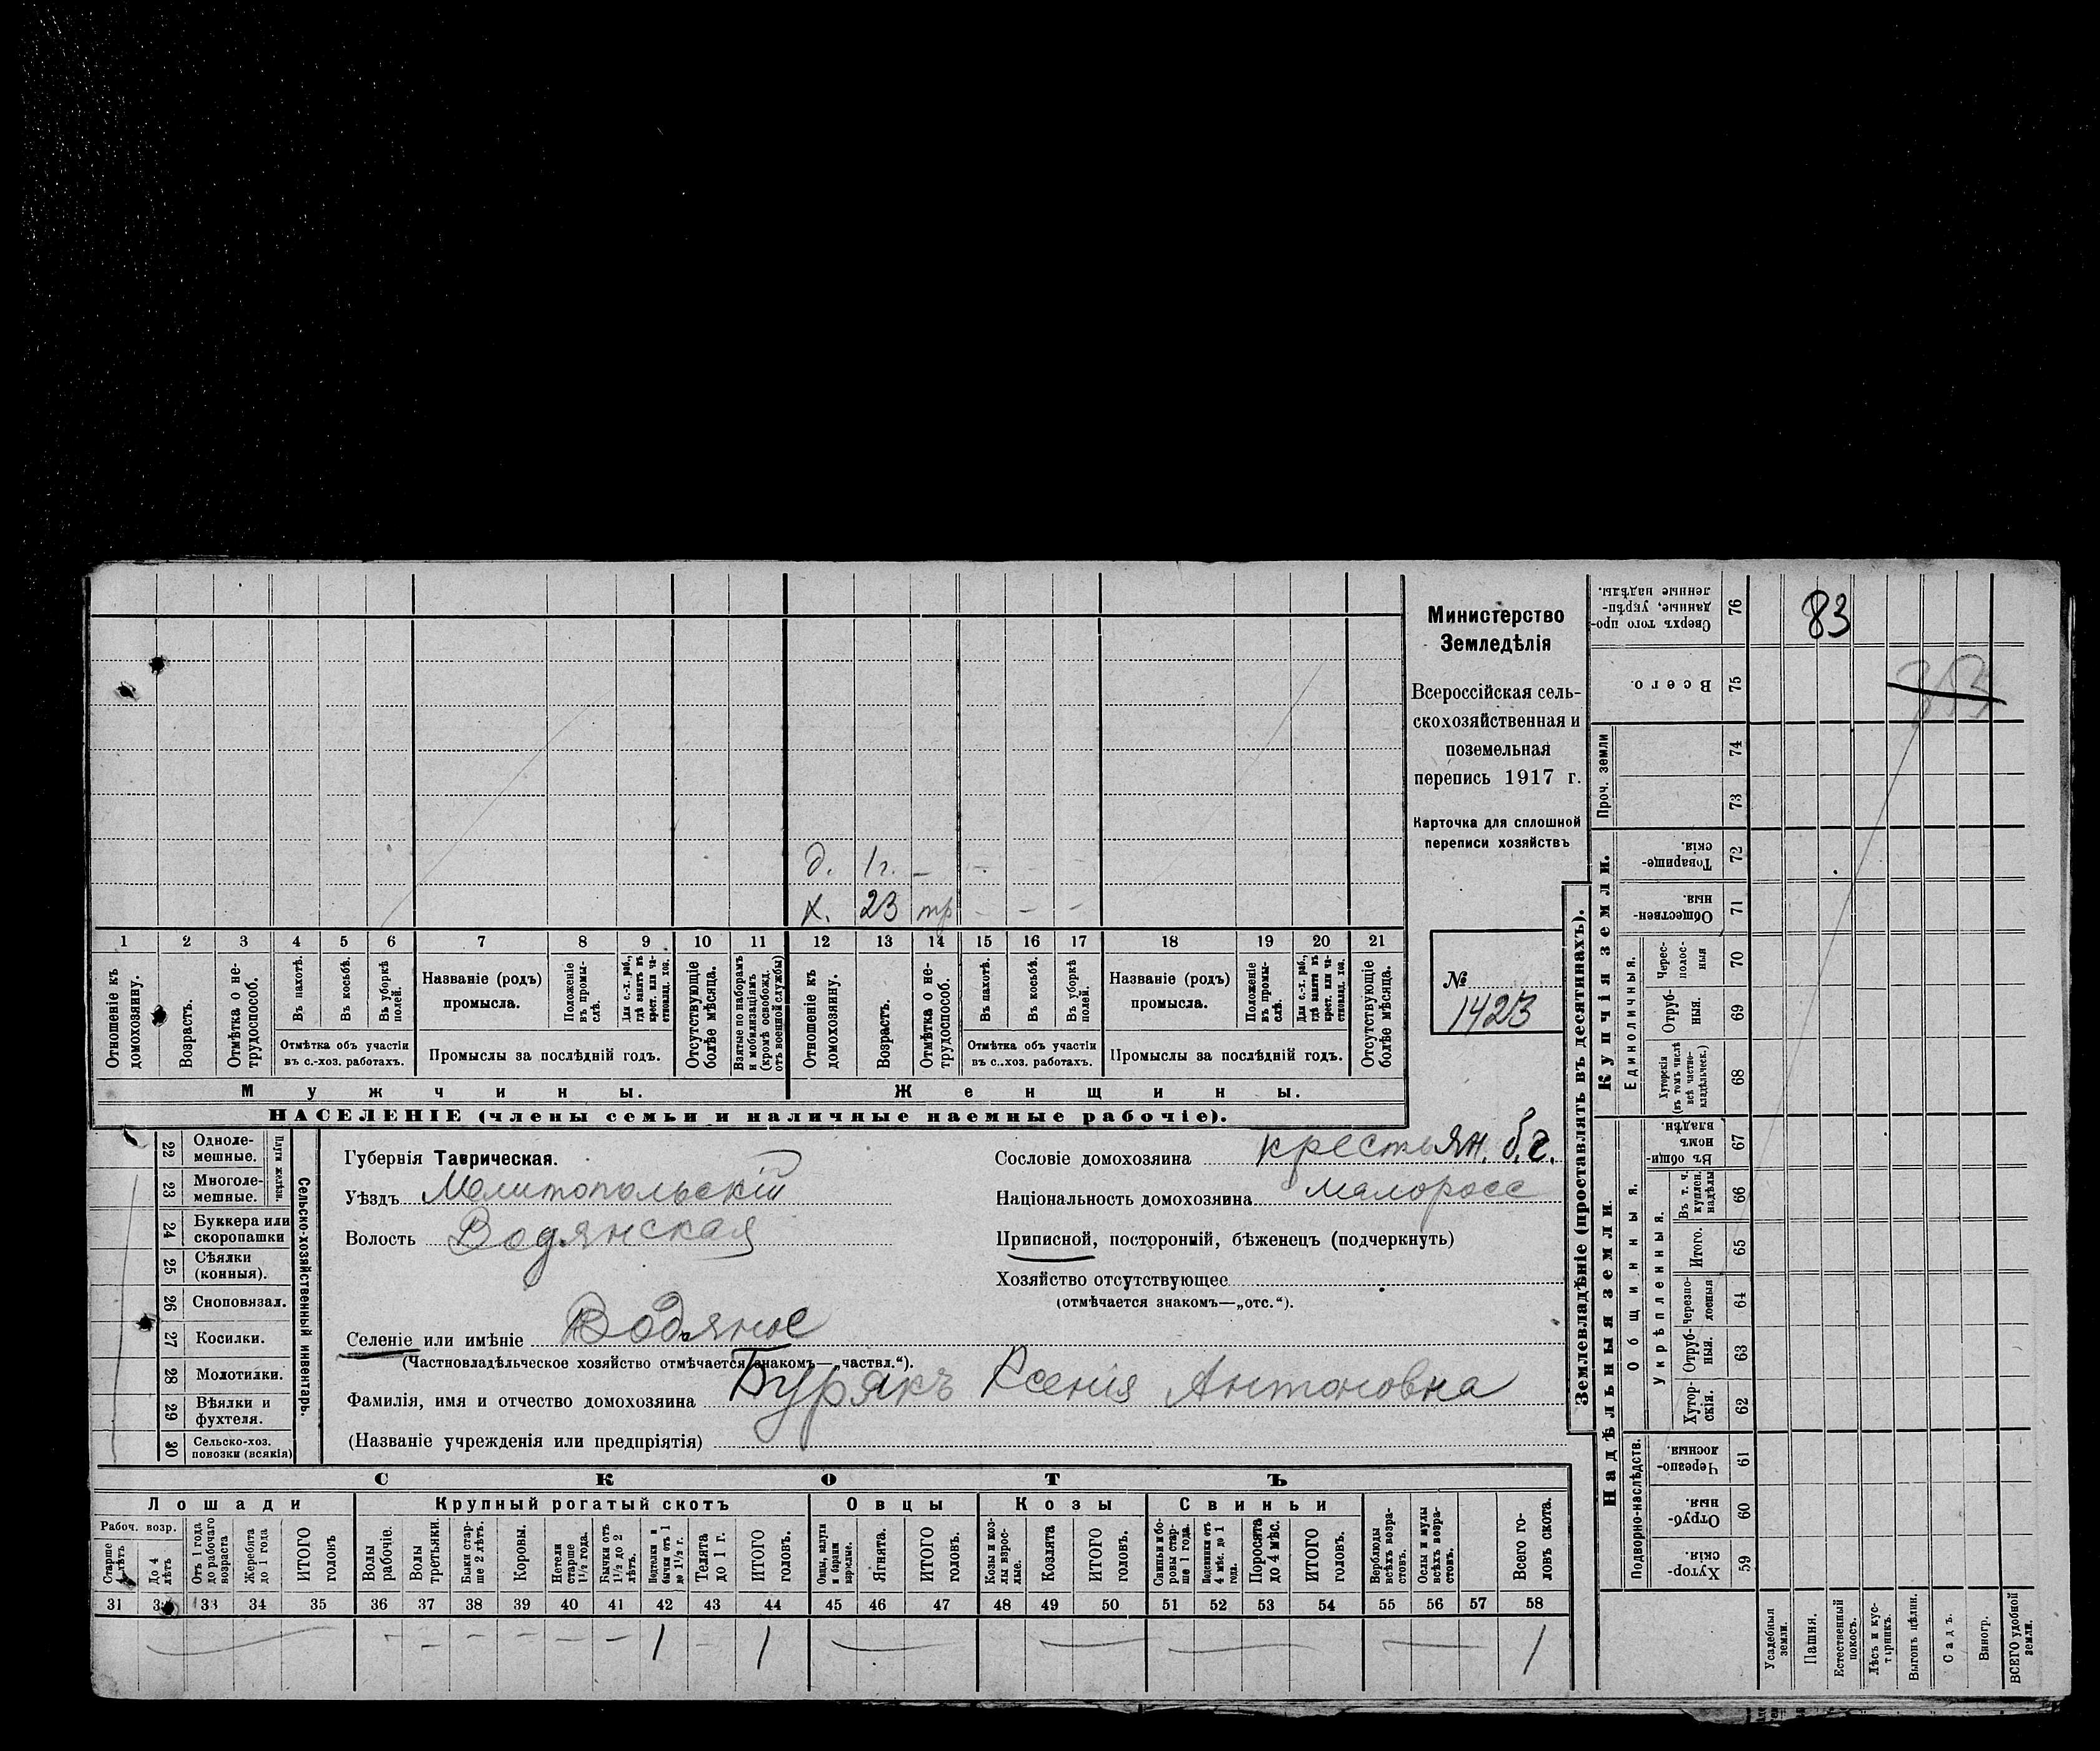 Министерство
Земледѣлія
Всероссійская сель-
скохозяйственная и
поземельная
перепись 1917 г.
Карточка для сплошной
переписи хозяйствъ
№
1423
д. 1 г. –
х. 23 тр – – –
1 2 3 4 5 6 7 8 9 10 11 12 13 14 15 16 17 18 19 20 21
Отношеніе къ домохозяину.
Возрастъ.
Отмѣтка о не-трудоспособ.
Въ пахотѣ.
Въ косьбѣ.
Въ уборкѣ полей.
Отмѣтка объ участіи
въ с.-хоз. работахъ.
Названіе (родъ)
промысла.
Положеніе въ промы-слѣ.
Для с.-х. раб., гдѣ занятъ въ крест. или ча-стновлад. хоз.
Промыслы за послѣдній годъ.
Отсутствующіе болѣе мѣсяца.
Взятые по наборамъ и мобилизаціямъ (кромѣ освобожд. отъ военной службы)
Отношеніе къ домохозяину.
Возрастъ.
Отмѣтка о не-трудоспособ.
Въ пахотѣ.
Въ косьбѣ.
Въ уборкѣ полей.
Отмѣтка объ участіи
въ с..хоз. работахъ.
Названіе (родъ)
промысла.
Положеніе въ промы-слѣ.
Для с.-х. раб., гдѣ занятъ въ крест. или ча-стновлад. хоз.
Промыслы за послѣдній годъ.
Отсутствующіе болѣе мѣсяца.
Мужчины.
Женщины.
НАСЕЛЕНІЕ (члены семьи и наличные наемные рабочіе).
22 Одноле-мешные.
23 Многоле-мешные.
Плуги желѣзн.
24 Буккера или скоропашки
25 Сѣялки (конныя).
26 Сноповязал.
27 Косилки.
28 Молотилки.
29 Вѣялки и фухтеля.
30 Сельско-хоз. повозки (всякія)
Сельско-хозяйственный инвентарь.
Губернія Таврическая.
Уѣздъ Мелитопольскій
Волость Водянская
Селеніе или имѣніе Водяное
(Частновладѣльческое хозяйство отмѣчается знакомъ—„частвл.“).
Фамилія, имя и отчество домохозяина Бурякъ Ксенія Антоновна
(Названіе учрежденія или предпріятія)
Сословіе домохозяина крестьян. б.г.
Національность домохозяина малоросс
Приписной, посторонній, бѣженецъ (подчеркнуть)
Хозяйство отсутствующее
(отмѣчается знакомъ—„отс.“).
СКОТЪ
Лошади
Крупный рогатый скотъ
Овцы
Козы
Свиньи
Рабоч. возр.
Старше 4 лѣтъ
До 4 лѣтъ
Отъ 1 года до рабочаго возраста
Жеребята до 1 года
ИТОГО головъ
Волы рабочіе.
Волы третьяки.
Быки стар-ше 2 лѣтъ.
Коровы.
Нетели старше 1½ года.
Бычки отъ 1½ до 2 лѣтъ.
Подтелки и бычки отъ 1 до 1½ г.
Телята до 1 г.
ИТОГО головъ.
Овцы, валухи и бараны взрослые.
Ягнята.
ИТОГО головъ.
Козы и коз-лы взрос-лые.
Козлята
ИТОГО головъ.
Свиньи и бо-ровы стар-ше 1 года.
Подсвинки отъ 4 мѣс. до 1 года.
Поросята до 4 мѣс.
ИТОГО головъ.
Верблюды всѣхъ возра-стовъ.
Ослы и мулы всѣхъ возра-стовъ.
Всего го-ловъ скота.
31 32 33 34 35 36 37 38 39 40 41 42 43 44 45 46 47 48 49 50 51 52 53 54 55 56 57 58
– – – – – – 1 – 1 1
Землевладѣніе (проставлять въ десятинахъ).
Надѣльныя земли.
Купчія земли.
Проч. земли
Подворно-наслѣдств.
Общинныя.
Укрѣпленныя.
Единоличныя.
Сверхъ того про-данные, укрѣп-ленные надѣлы. 76
Всего. 75
74
73
Товарище-скія. 72
Обществен-ныя. 71
Черес-полос-ныя 70
Отруб-ныя. 69
Хуторскія (въ томъ числѣ всѣ частно-владѣльческ.) 68
Въ общин-номъ владѣн. 67
Въ т. ч. куплен. надѣлы 66
Итого. 65
Черезпо-лосныя 64
Отруб-ныя. 63
Хутор-скія. 62
Черезпо-лосныя 61
Отруб-ныя. 60
Хутор-скія. 59
83
Усадебныя земли.
Пашня.
Естественный покосъ.
Лѣсъ и кус-тарникъ.
Выгонъ цѣлин.
Садъ.
Виногр.
ВСЕГО удобной земли.